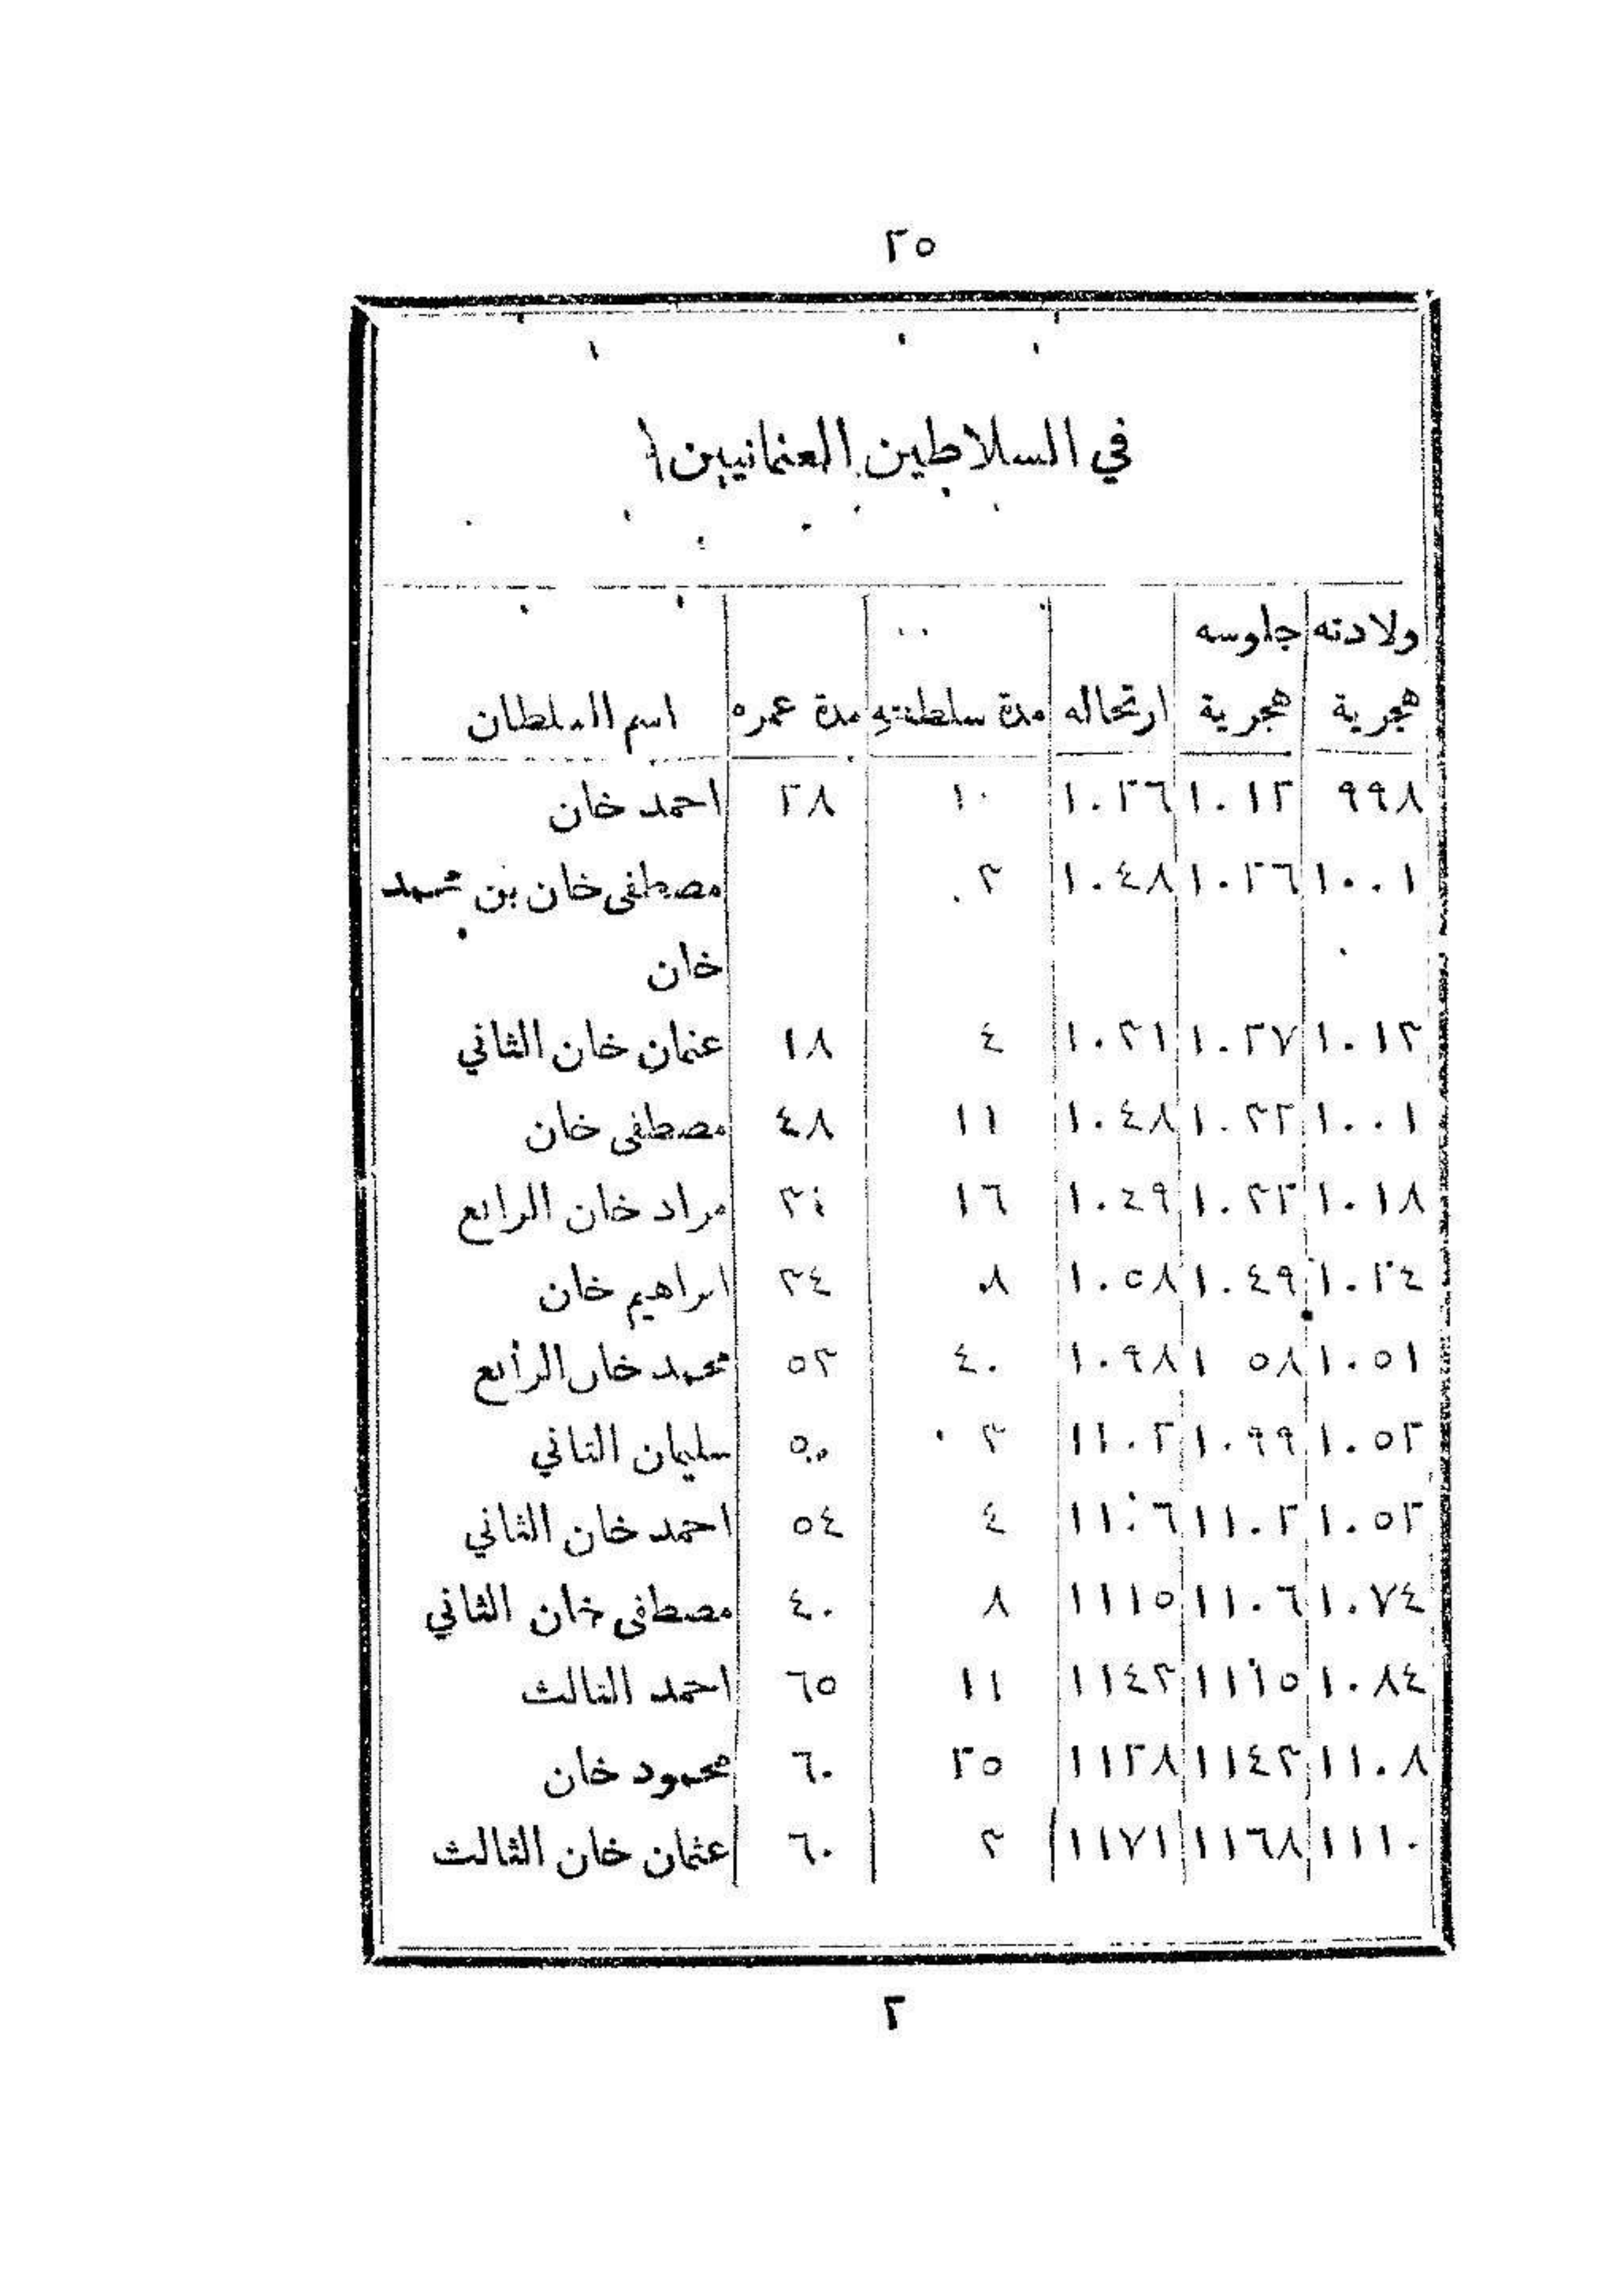 ٢٥
في السلاطين العثمانيين
ولادته جلوسه
هجرية هجرية ارتحاله مدة سلطنته مدة عمره اسم السلطان
٩٩٨ ١٠١٢ ١٠٢٦ ١٠ ٢٨ احمد خان
١٠٠١ ١٠٢٦ ١٠٤٨ ٣ مصطفى خان بن محمد
خان
١٠١٣ ١٠٢٧ ١٠٣١ ٤ ١٨ عثمان خان الثاني
١٠٠١ ١٠٣٢ ١٠٤٨ ١١ ٤٨ مصطفى خان
١٠١٨ ١٠٣٢ ١٠٤٩ ١٦ ٣٤ مراد خان الرابع
١٠٢٤ ١٠٤٩ ١٠٥٨ ٨ ٣٤ ابراهيم خان
١٠٥١ ١٠٥٨ ١٠٩٨ ٤٠ ٥٣ محمد خان الرابع
١٠٥٢ ١٠٩٩ ١١٠٢ ٣ ٥٠ سليمان الثاني
١٠٥٢ ١١٠٢ ١١٠٦ ٤ ٥٤ احمد خان الثاني
١٠٧٤ ١١٠٦ ١١١٥ ٨ ٤٠ مصطفى خان الثاني
١٠٨٤ ١١١٥ ١١٤٣ ١١ ٦٥ احمد الثالث
١١٠٨ ١١٤٣ ١١٢٨ ٢٥ ٦٠ محمود خان
١١١٠ ١١٦٨ ١١٧١ ٣ ٦٠ عثمان خان الثالث
٢